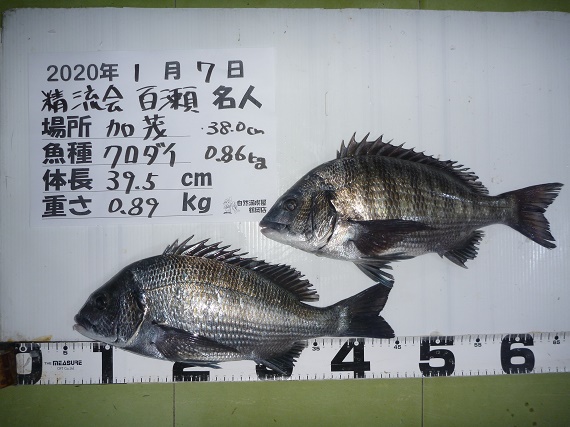 2020年 1月7日
精流会 百瀬 名人
場所 加茂 38.0cm
魚種 クロダイ 0.86kg
体長 39.5 cm
重さ 0.89 kg
0 1 2 3 4 5 6
THE MEASURE